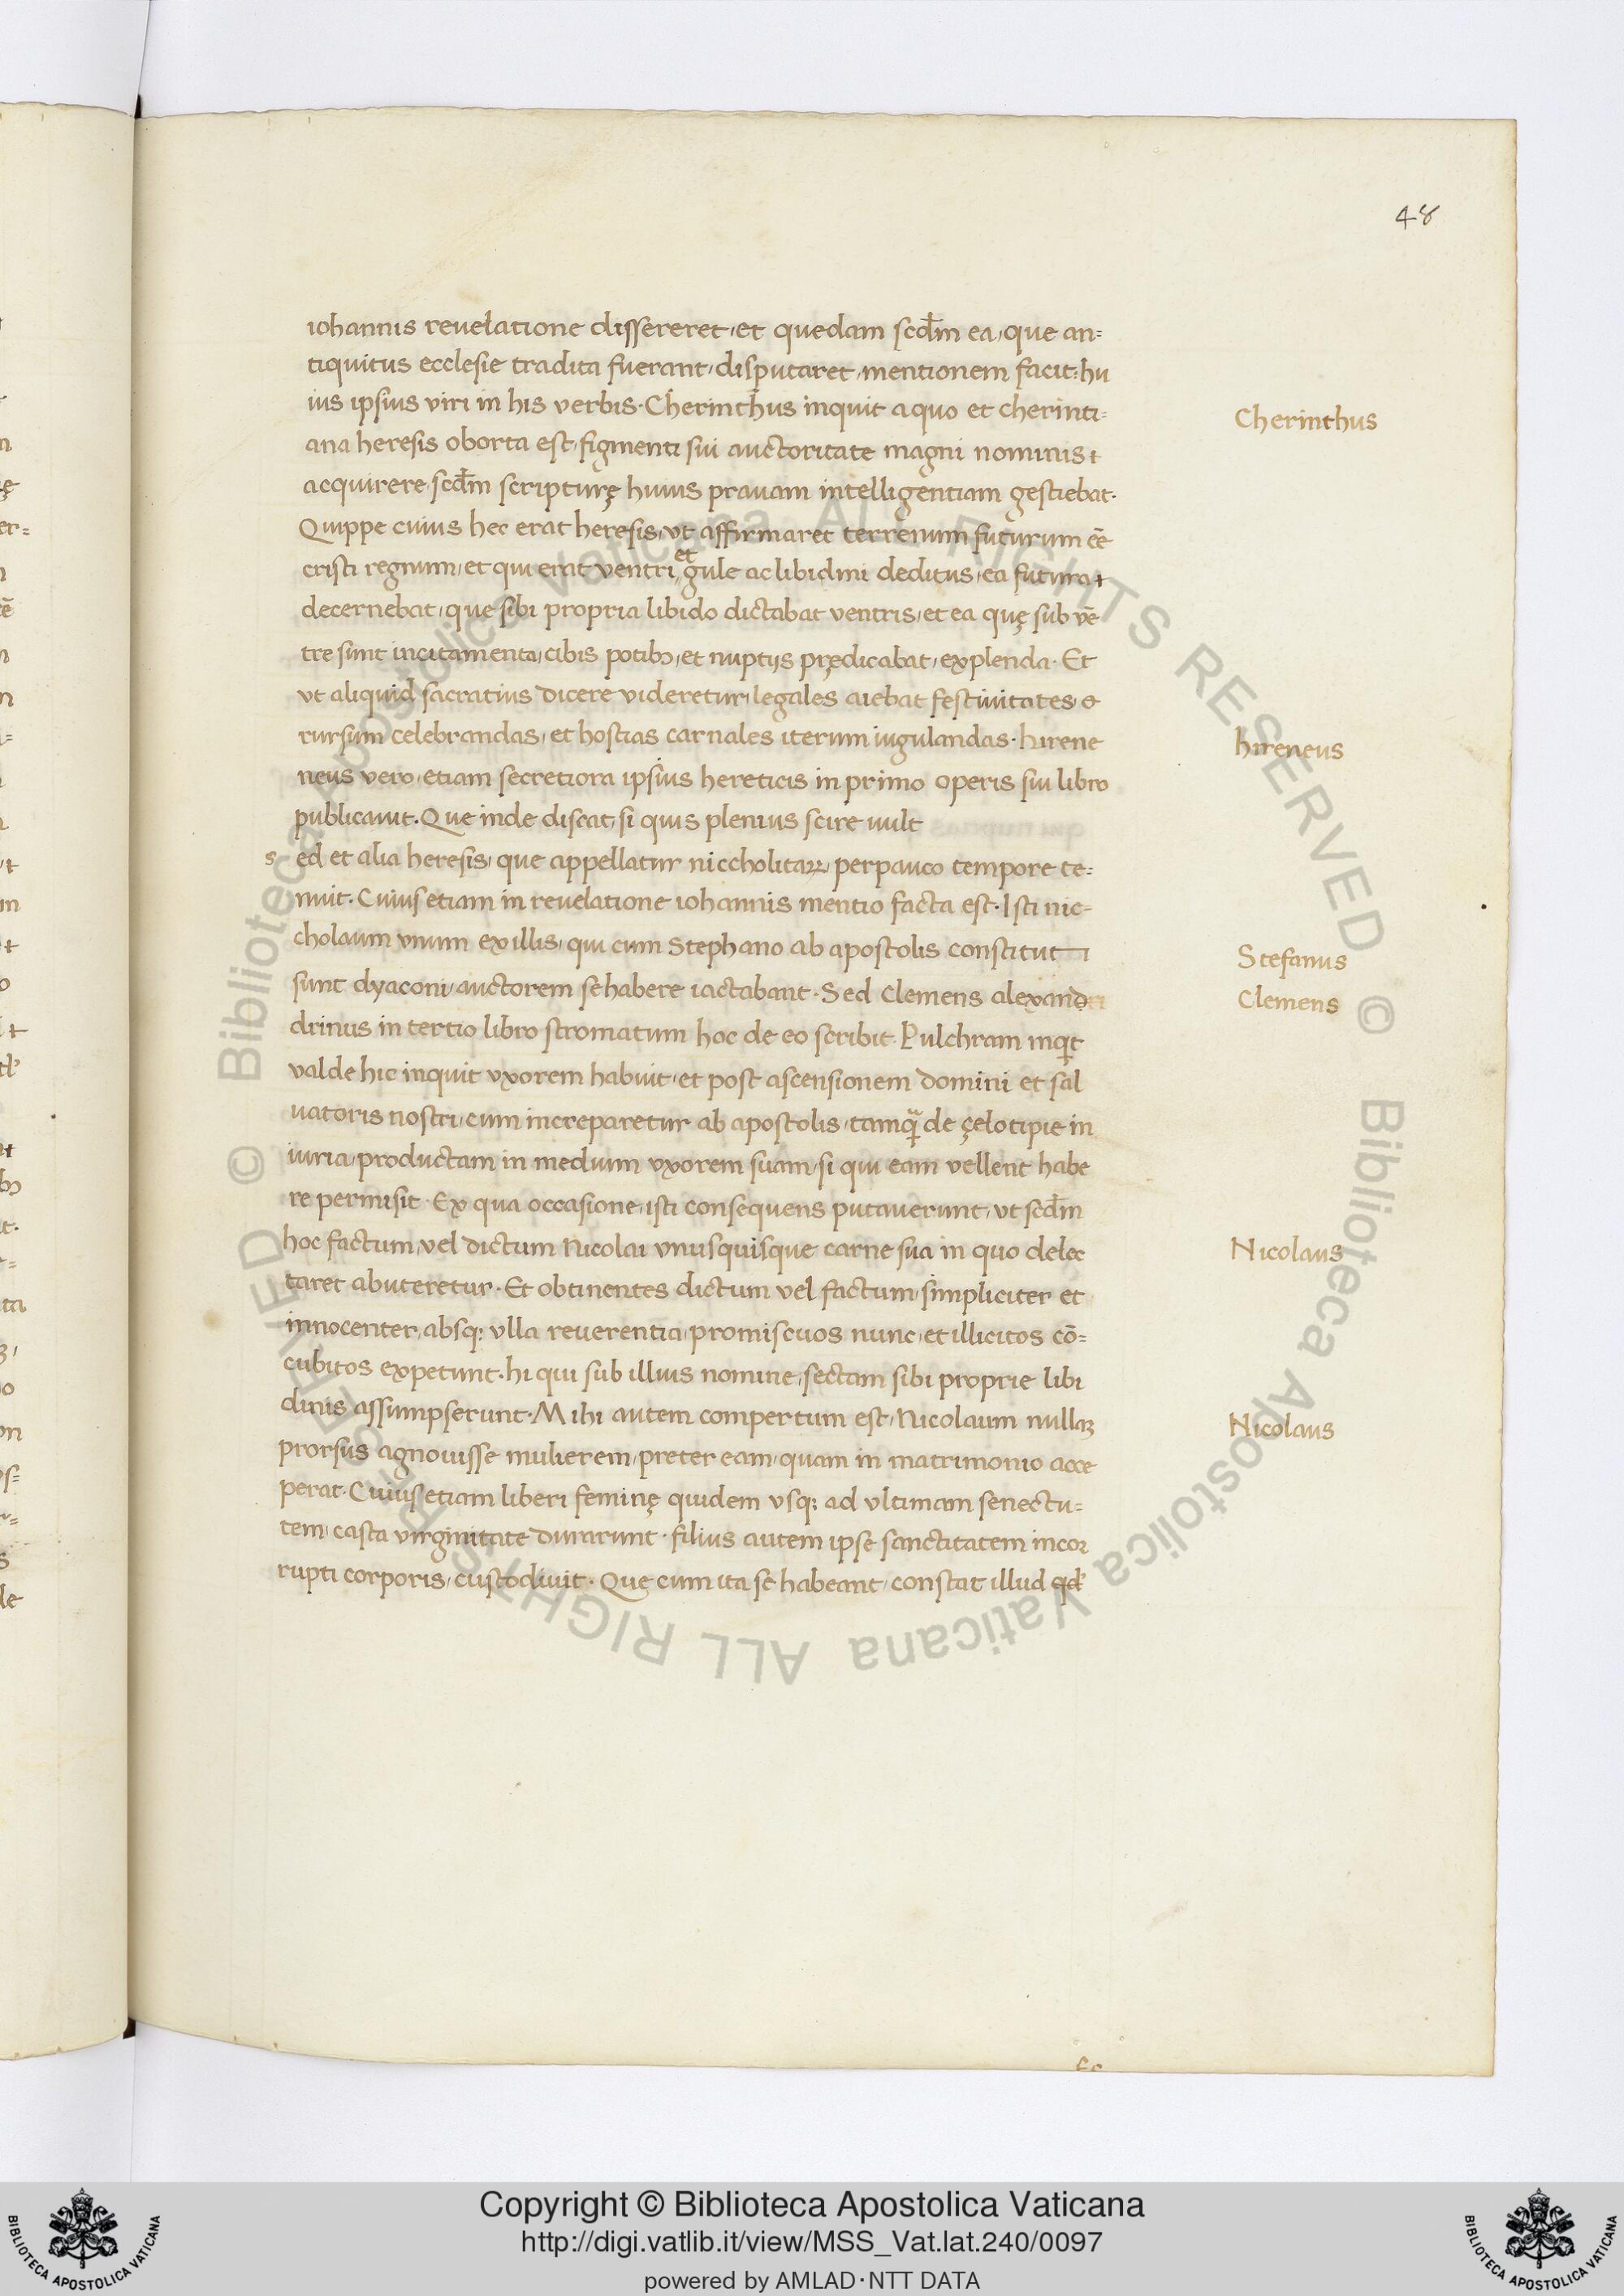 48
iohannis reuelatione dissereret, et quedam scd̄m ea, que an=
tiquitus ecclesie tradita fuerant, disputaret, mentionem facit: hu
ius ipsius viri in his verbis. Cherinthus inquit a quo et cherinti=
Cherinthus
ana heresis oborta est, figmenti sui auctoritate magni nominis
acquirere, scd̄m scripturę huius prauam intelligentiam gestiebat.
Quippe cuius hec erat heresis, vt affirmaret terrenum futurum eē
cristi regnum, et qui erat ventri, et gule ac libidini deditus, ea futura
decernebat, que sibi propria libido dictabat ventris, et ea quę sub vē
tre sunt incitamenta, cibis potibꝫ, et nuptijs prędicabat, explenda. Et
vt aliquid sacratius dicere videretur, legales aiebat festiuitates,
rursum celebrandas, et hostias carnales iterum iugulandas. hirene
hireneus
neus vero, etiam secretiora ipsius hereticis in primo operis sui libro
publicauit. Que inde discat, si quis plenius scire uult
s ed et alia heresis, que appellatur niccholitaꝝ, perpauco tempore te=
nuit. Cuius etiam in reuelatione iohannis mentio facta est. Isti nic-
cholaum vnum ex illis, qui cum Stephano ab apostolis constituti
Stefanus
sunt dyaconi, auctorem se habere iactabant. Sed Clemens alexand
Clemens
drinus in tertio libro stromatum hoc de eo scribit. Pulchram inqͥt
valde hic inquit vxorem habuit, et post ascensionem domini et sal
uatoris nostri, cum increparetur ab apostolis, tamqᷓ de çelotipie in
iuria, productam in medium vxorem suam, si qui eam vellent habe
re permisit. Ex qua occasione, isti consequens putauerunt, vt scd̄m
hoc factum, vel dictum Nicolai vnusquisque carne sua in quo delec
Nicolaus
taret abuteretur. Et obtinentes dictum vel factum, simpliciter et
innocenter, absqꝫ vlla reuerentia, promiscuos nunc, et illicitos cō=
cubitos expetunt. hi qui sub illius nomine, sectam sibi proprie libi
dinis assumpserunt. Mihi autem compertum est, Nicolaum nullaꝫ
Nicolaus
prorsus agnouisse mulierem, preter eam, quam in matrimonio acce
perat. Cuius etiam liberi feminę quidem vsqꝫ ad vltimam senectu=
tem, casta virginitate durarunt. filius autem ipse sanctitatem incor
rupti corporis, custodiuit. Que cum ita se habeant, constat illud qd̓
© Biblioteca Apostolica Vaticana ALL RIGHTS RESERVED © Biblioteca Apostolica Vaticana ALL RIGHTS RESERVED
Copyright © Biblioteca Apostolica Vaticana
http://digi.vatlib.it/view/MSS_Vat.lat.240/0097
powered by AMLAD·NTT DATA
BIBLIOTECA APOSTOLICA VATICANA
BIBLIOTECA APOSTOLICA VATICANA